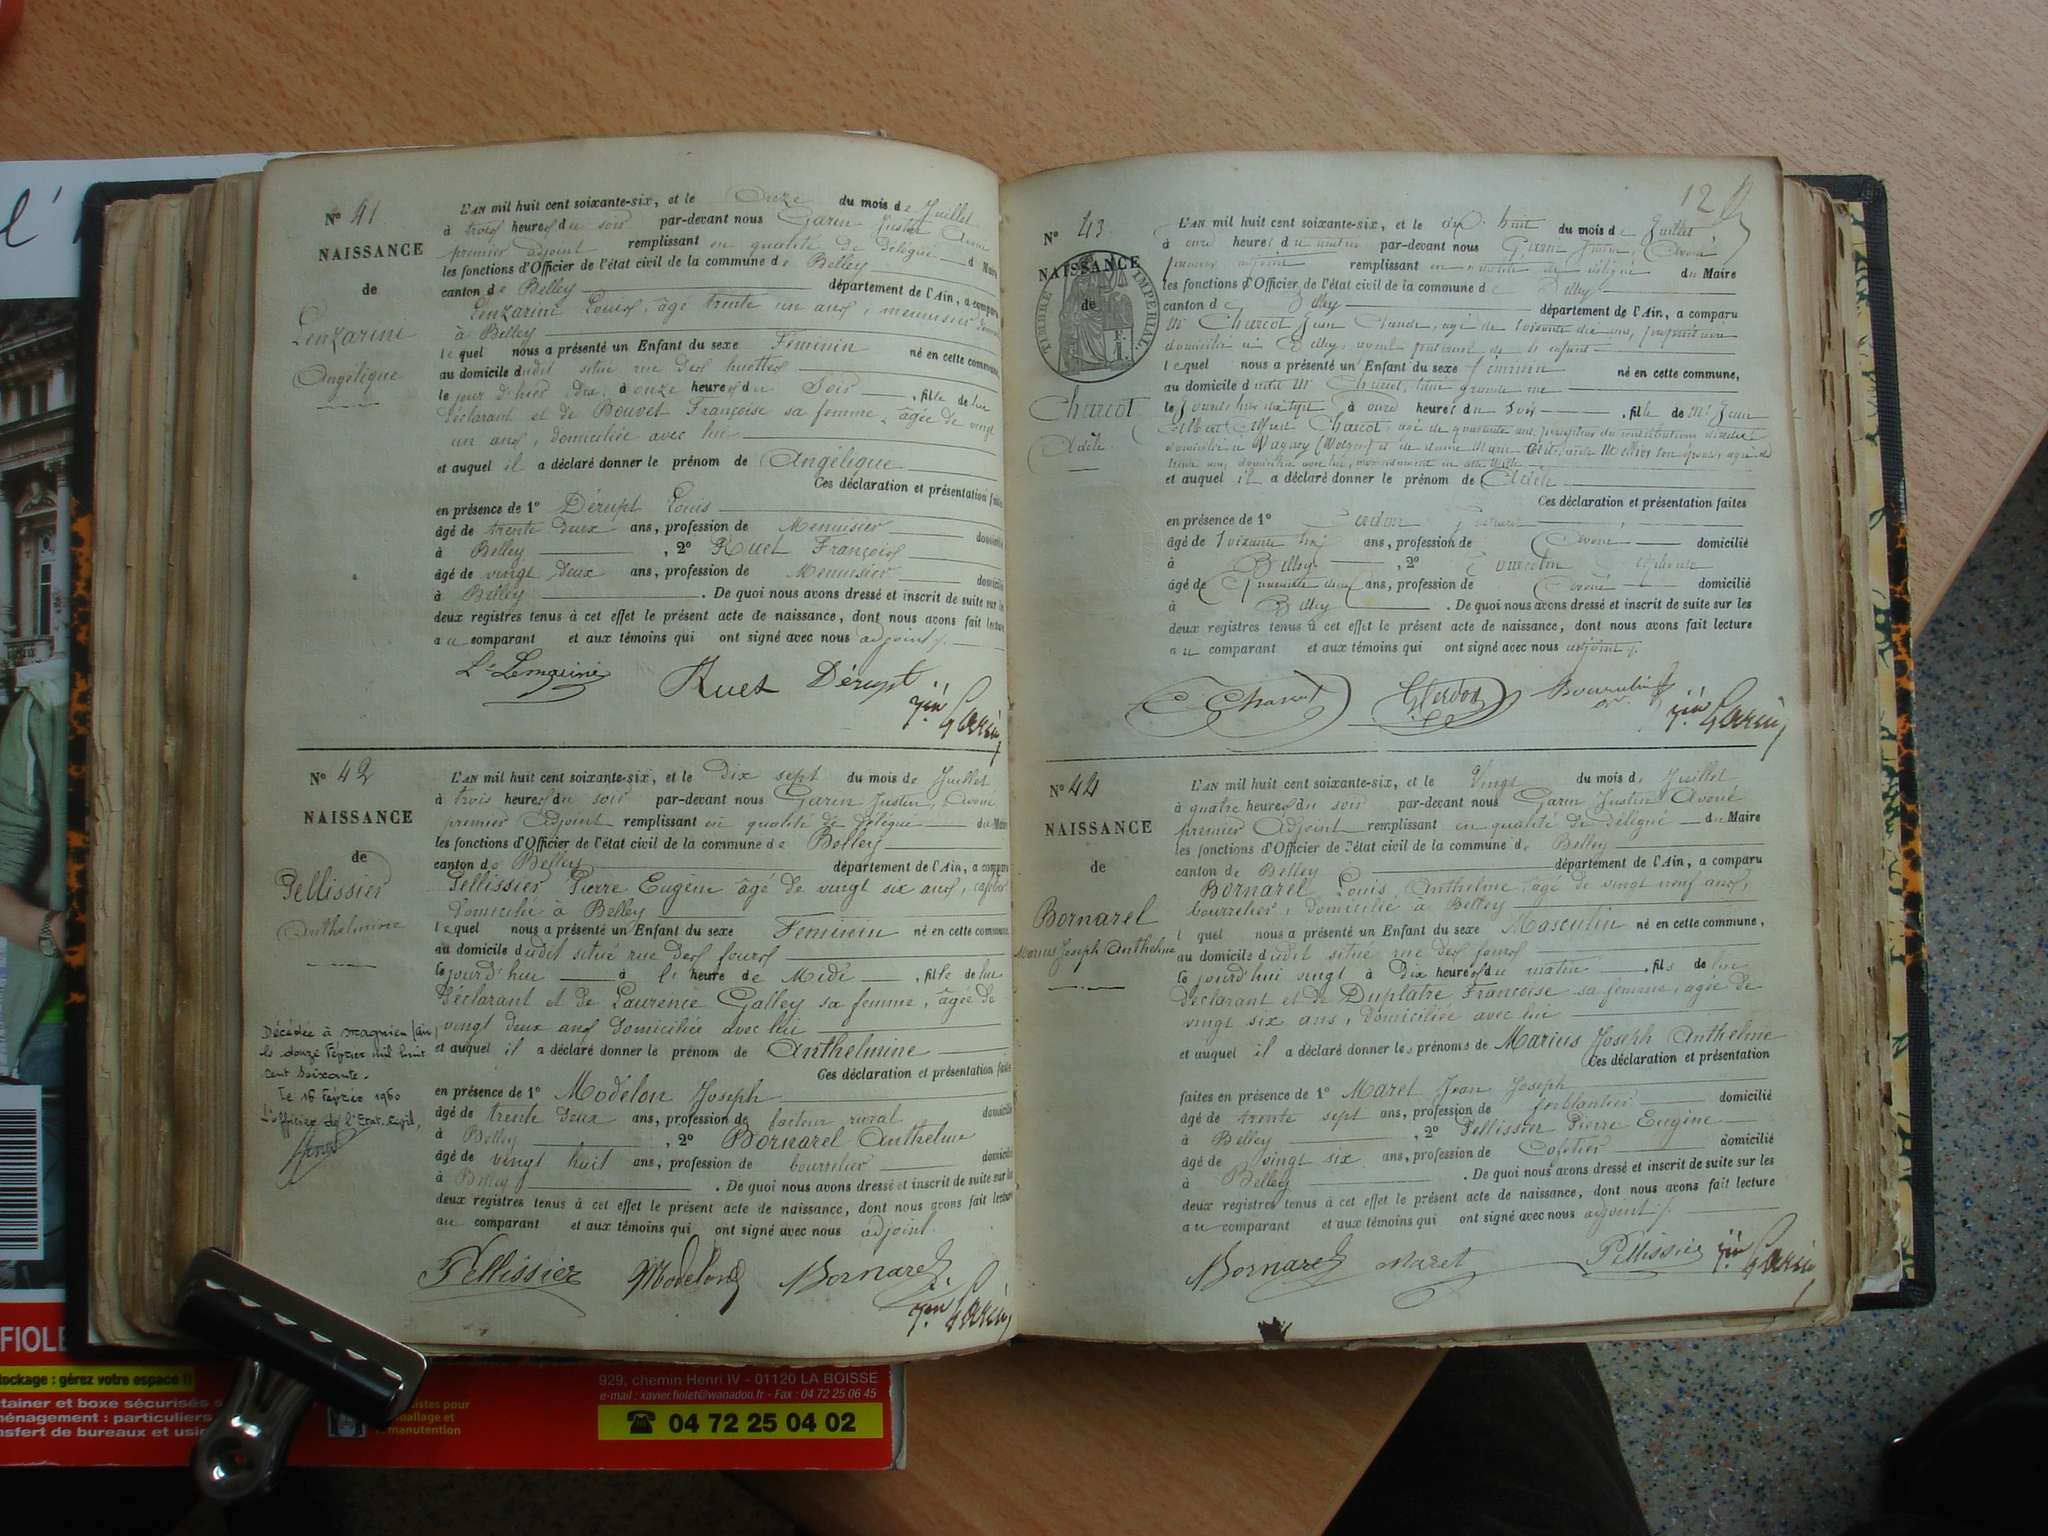 N° 41
NAISSANCE
de
Lenzarini
Angélique
L'AN mil huit cent soixante-six, et le Onze du mois de Juillet
à trois heures du soir par-devant nous Garin Justin Avoué
premier adjoint remplissant en qualité de Délégué du Maire
les fonctions d'Officier de l'état civil de la commune de Belley
canton de Belley département de l'Ain, a comparu
Lenzarini Louis, âgé trente un ans, menuisier
à Belley
lequel nous a présenté un Enfant du sexe Féminin né en cette commune,
au domicile dudit situé rue des huettes
le jour d'hier dix à onze heures du Soir, fille de lui
déclarant et de Bouvet Françoise sa femme, âgée de vingt
un ans, domiciliée avec lui
et auquel il a déclaré donner le prénom de Angélique
Ces déclaration et présentation faites
en présence de 1° Dérupt Louis
âgé de trente deux ans, profession de Menuisier domicilié
à Belley, 2° Ruet François
âgé de vingt deux ans, profession de Menuisier domicilié
à Belley. De quoi nous avons dressé et inscrit de suite sur les
deux registres tenus à cet effet le présent acte de naissance, dont nous avons fait lecture
au comparant et aux témoins qui ont signé avec nous adjoint /.
Ruet Dérupt
Jin Garin
N° 42
NAISSANCE
de
Pellissier
Anthelmine
Décédée à Magnieu (Ain)
le douze Février mil neuf
cent soixante.
Le 16 Février 1960
L'officier de l'Etat-Civil,
L'AN mil huit cent soixante-six, et le Dix sept du mois de Juillet
à trois heures du soir par-devant nous Garin Justin, Avoué
premier Adjoint remplissant en qualité de Délégué du Maire
les fonctions d'Officier de l'état civil de la commune de Belley
canton de Belley département de l'Ain, a comparu
Pellissier Pierre Eugène âgé de vingt six ans, cafetier
domicilié à Belley
lequel nous a présenté un Enfant du sexe Féminin né en cette commune,
au domicile dudit situé rue des fours
le jourd'hui à l' heure de Midi, fille de lui
déclarant et de Laurence Galley sa femme, âgée de
vingt deux ans domiciliée avec lui
et auquel il a déclaré donner le prénom de Anthelmine
Ces déclaration et présentation faites
en présence de 1° Modélon Joseph
âgé de trente deux ans, profession de facteur rural domicilié
à Belley, 2° Bornarel Anthelme
âgé de vingt huit ans, profession de bourrelier domicilié
à Belley. De quoi nous avons dressé et inscrit de suite sur les
deux registres tenus à cet effet le présent acte de naissance, dont nous avons fait lecture
au comparant et aux témoins qui ont signé avec nous adjoint.
Pellissier Modelon Bornarel
Jin Garin
12
N° 43
NAISSANCE
de
TIMBRE IMPERIAL
Charcot
Adèle
L'AN mil huit cent soixante-six, et le dix huit du mois de Juillet
à onze heures du matin par-devant nous Garin Justin, Avoué
premier adjoint remplissant en qualité de délégué du Maire
les fonctions d'Officier de l'état civil de la commune de Belley
canton de Belley département de l'Ain, a comparu
Mr Charcot Jean Claude, âgé de soixante dix ans, propriétaire
domicilié à Belley, ayeul paternel de l'enfant
lequel nous a présenté un Enfant du sexe féminin né en cette commune,
au domicile dudit Mr Charcot, situé grande rue
le jour d'hier dix sept à onze heures du Soir, fille de Mr Jean
Charcot, âgé de quarante ans, percepteur des contributions directes
domicilié à Vagney (Vosges) et de dame
trente ans, domiciliée avec lui, momentanément en cette Ville
et auquel il a déclaré donner le prénom de Adèle
Ces déclaration et présentation faites
en présence de 1° Cerdon
âgé de soixante six ans, profession de Avoué domicilié
à Belley, 2° Bourubin Alphonse
âgé de Quarante deux ans, profession de Avoué domicilié
à Belley. De quoi nous avons dressé et inscrit de suite sur les
deux registres tenus à cet effet le présent acte de naissance, dont nous avons fait lecture
au comparant et aux témoins qui ont signé avec nous adjoint /.
C. Charcot Cerdon Bourubin
Jin Garin
N° 44
NAISSANCE
de
Bornarel
Marius Joseph Anthelme
L'AN mil huit cent soixante-six, et le Vingt du mois de Juillet
à quatre heures du soir par-devant nous Garin Justin Avoué
premier Adjoint remplissant en qualité de Délégué du Maire
les fonctions d'Officier de l'état civil de la commune de Belley
canton de Belley département de l'Ain, a comparu
Bornarel Louis Anthelme âgé de vingt neuf ans,
bourrelier, domicilié à Belley
l quel nous a présenté un Enfant du sexe Masculin né en cette commune,
au domicile dudit situé rue des fours
le jourd'hui vingt à Dix heures du matin, fils de lui
déclarant et de Duplatre Françoise sa femme, agée de
vingt six ans, domiciliée avec lui
et auquel il a déclaré donner les prénoms de Marius Joseph Anthelme
Ces déclaration et présentation
faites en présence de 1° Maret Jean Joseph
âgé de trente sept ans, profession de ferblantier domicilié
à Belley, 2° Pellissier Pierre Eugène
âgé de vingt six ans, profession de Cafetier domicilié
à Belley. De quoi nous avons dressé et inscrit de suite sur les
deux registres tenus à cet effet le présent acte de naissance, dont nous avons fait lecture
au comparant et aux témoins qui ont signé avec nous adjoint /.
Bornarel Maret Pellissier Jin Garin
FIOLE
stockage : gérez votre espace !!
tainer et boxe sécurisés
ménagement : particuliers
nsfert de bureaux et usi
istes pour
ballage et
manutention
929, chemin Henri IV - 01120 LA BOISSE
e-mail : xavier.fiolet@wanadoo.fr - Fax : 04 72 25 06 45
☎ 04 72 25 04 02